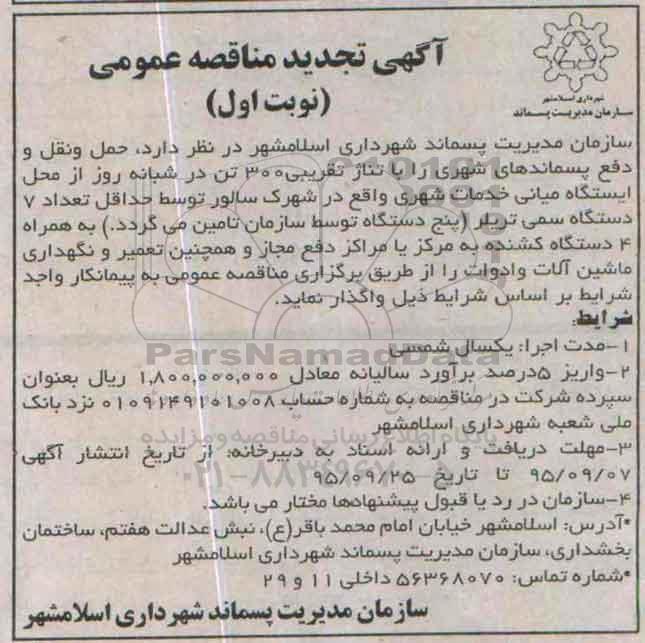 آگهی تجدید مناقصه عمومی
(نوبت اول)
شهرداری اسلامشهر
سازمان مدیریت پسماند
سازمان مدیریت پسماند شهرداری اسلامشهر در نظر دارد، حمل ونقل و
دفع پسماندهای شهری را با تناژ تقریبی۳۰۰ تن در شبانه روز از محل
ایستگاه میانی خدمات شهری واقع در شهرک سالور توسط حداقل تعداد ۷
دستگاه سمی تریلر (پنج دستگاه توسط سازمان تامین می گردد.) به همراه
۴ دستگاه کشنده به مرکز یا مراکز دفع مجاز و همچنین تعمیر و نگهداری
ماشین آلات وادوات را از طریق برگزاری مناقصه عمومی به پیمانکار واجد
شرایط بر اساس شرایط ذیل واگذار نماید.
شرایط:
۱-مدت اجرا: یکسال شمسی
ParsNamadData
۲-واریز ۵درصد برآورد سالیانه معادل ۱,۸۰۰,۰۰۰,۰۰۰ ریال بعنوان
سپرده شرکت در مناقصه به شماره حساب ۰۱۰۹۱۴۹۱۰۱۰۰۸ نزد بانک
ملی شعبه شهرداری اسلامشهر
پایگاه اطلاع رسانی مناقصه و مزایده
۳-مهلت دریافت و ارائه اسناد به دبیرخانه: از تاریخ انتشار آگهی
۹۵/۰۹/۰۷ تا تاریخ ۹۵/۰۹/۲۵
۰۲۱-۸۸۳۴۹۶۷۰-۵
۴-سازمان در رد یا قبول پیشنهادها مختار می باشد.
*آدرس: اسلامشهر خیابان امام محمد باقر(ع)، نبش عدالت هفتم، ساختمان
بخشداری، سازمان مدیریت پسماند شهرداری اسلامشهر
*شماره تماس: ۵۶۳۶۸۰۷۰ داخلی ۱۱ و ۲۹
سازمان مدیریت پسماند شهرداری اسلامشهر